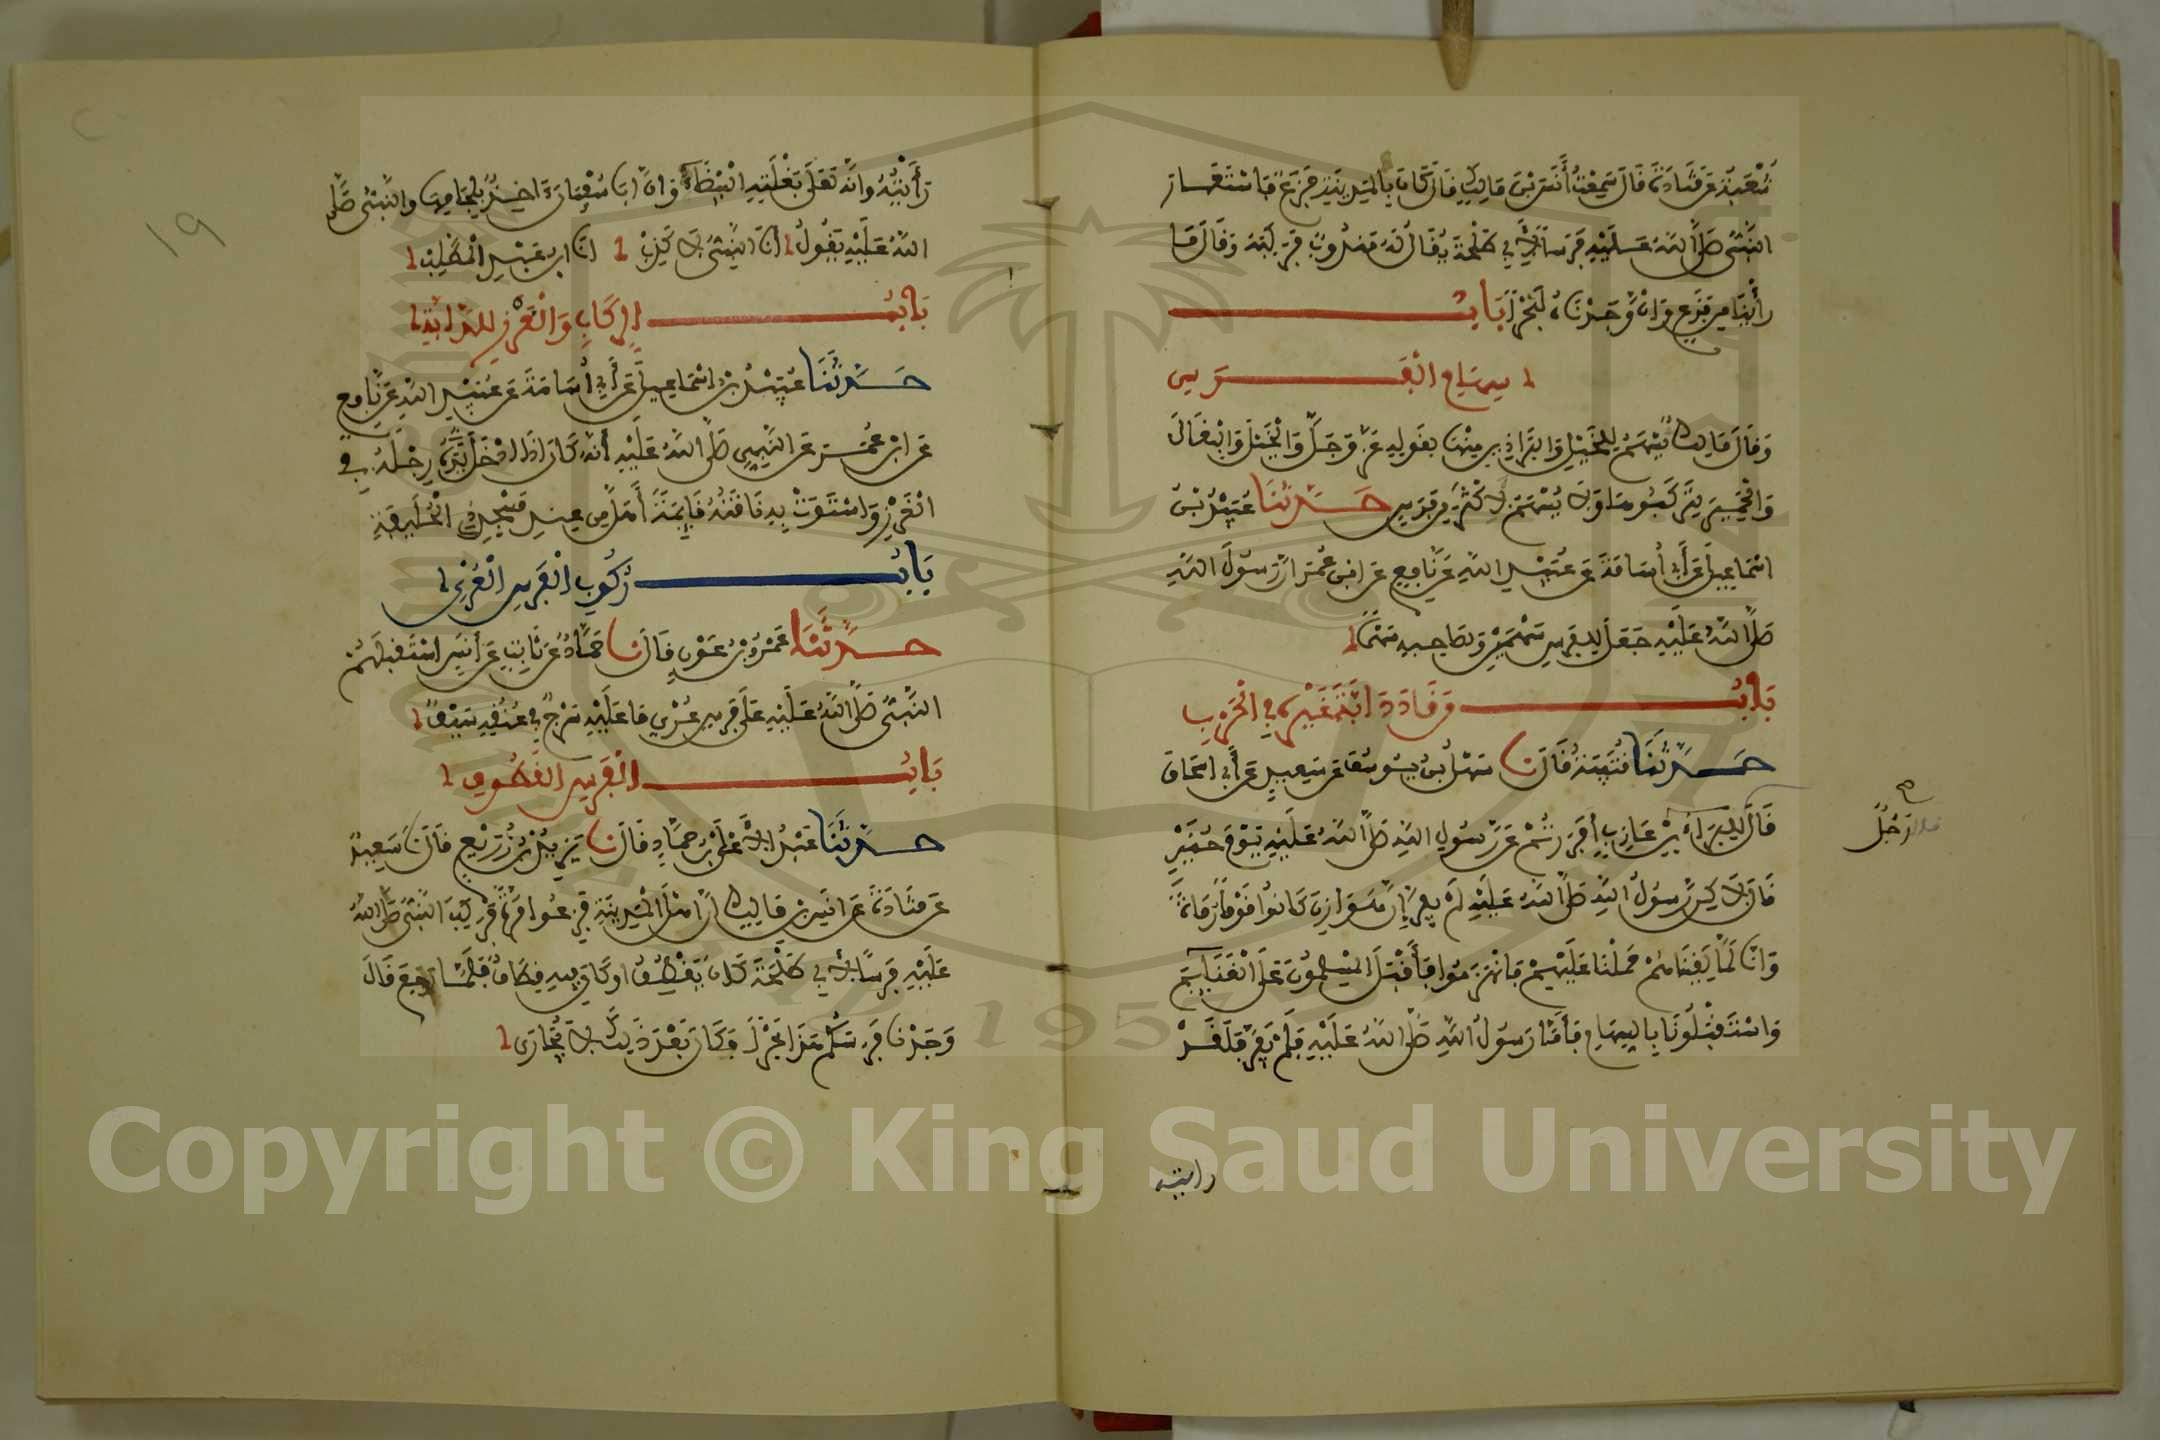 شُعْبَةُ عَن قَتَادَةَ قَالَ سَمِعْتُ أَنَسَ بْنَ مَالِكٍ قَالَ كَانَ بِالْمَدِينَةِ فَزَعٌ فَاسْتَعَارَ
النَّبِيُّ صَلَّى اللَّهُ عَلَيْهِ فَرَسًا لِأَبِي طَلْحَةَ يُقَالُ لَهُ مَنْدُوبٌ فَرَكِبَهُ وَقَالَ مَا
رَأَيْنَا مِن فَزَعٍ وَإِنْ وَجَدْنَاهُ لَبَحْرًا بَابُ
سِهَامِ الْفَرَسِ
وَقَالَ مَالِكٌ يُسْهَمُ لِلْخَيْلِ وَالْبَرَاذِينِ مِنْهَا بِقَوْلِهِ عَزَّ وَجَلَّ وَالْخَيْلَ وَالْبِغَالَ
وَالْحَمِيرَ لِتَرْكَبُوهَا وَلَا يُسْهَمُ لِأَكْثَرَ مِن فَرَسٍ حَدَّثَنَا عُبَيْدُ بْنُ
اسْمَاعِيلَ عَن أَبِي أُسَامَةَ عَن عُبَيْدِ اللَّهِ عَن نَّافِعٍ عَن ابْنِ عُمَرَ أَنَّ رَسُولَ اللَّهِ
صَلَّى اللَّهُ عَلَيْهِ جَعَلَ لِلْفَرَسِ سَهْمَيْنِ وَلِصَاحِبِهِ سَهْمًا
بَابُ مَن قَادَ دَابَّةَ غَيْرِهِ فِي الْحَرْبِ
حَدَّثَنَا قُتَيْبَةُ قَالَ نا سَهْلُ بْنُ يُوسُفَ عَن شُعْبَةَ عَن أَبِي اسْحَاقَ
قَالَ لِلْبَرَاءِ بْنِ عَازِبٍ أَفَرَرْتُمْ عَن رَّسُولِ اللَّهِ صَلَّى اللَّهُ عَلَيْهِ يَوْمَ حُنَيْنٍ
رَجُلٌ
قَالَ لَكِنَّ رَسُولَ اللَّهِ صَلَّى اللَّهُ عَلَيْهِ لَمْ يَفِرَّ إِنَّ هَوَازِنَ كَانُوا قَوْمًا رُمَاةً
وَإِنَّا لَمَّا لَقِينَاهُمْ حَمَلْنَا عَلَيْهِمْ فَانْهَزَمُوا فَأَقْبَلَ الْمُسْلِمُونَ عَلَى الْغَنَائِمِ
وَاسْتَقْبَلُونَا بِالسِّهَامِ فَأَمَّا رَسُولُ اللَّهِ صَلَّى اللَّهُ عَلَيْهِ فَلَمْ يَفِرَّ فَلَقَدْ
رايته
رَأَيْتُهُ وَإِنَّهُ لَعَلَى بَغْلَتِهِ الْبَيْضَاءِ وَإِنَّ أَبَا سُفْيَانَ ءَاخِذٌ بِلِجَامِهَا وَالنَّبِيُّ صَلَّى
اللَّهُ عَلَيْهِ يَقُولُ أَنَا النَّبِيُّ لَا كَذِبْ أَنَا ابْنُ عَبْدِ الْمُطَّلِبْ
بَابُ الرِّكَابِ وَالْغَرْزِ لِلدَّابَّةِ
حَدَّثَنَا عُبَيْدُ بْنُ اسْمَاعِيلَ عَن أَبِي أُسَامَةَ عَن عُبَيْدِ اللَّهِ عَن نَّافِعٍ
عَن ابْنِ عُمَرَ عَن النَّبِيِّ صَلَّى اللَّهُ عَلَيْهِ أَنَّهُ كَانَ إِذَا أَدْخَلَ رِجْلَهُ فِي
الْغَرْزِ وَاسْتَوَتْ بِهِ نَاقَتُهُ قَائِمَةً أَهَلَّ مِن عِندِ مَسْجِدِ ذِي الْحُلَيْفَةِ
بَابُ رُكُوبِ الْفَرَسِ الْعُرْيِ
حَدَّثَنَا عَمْرُو بْنُ عَوْنٍ قَالَ نا حَمَّادٌ عَن ثَابِتٍ عَن أَنَسٍ اسْتَقْبَلَهُمُ
النَّبِيُّ صَلَّى اللَّهُ عَلَيْهِ عَلَى فَرَسٍ عُرْيٍ مَا عَلَيْهِ سَرْجٌ فِي عُنُقِهِ سَيْفٌ
بَابُ الْفَرَسِ الْقَطُوفِ
حَدَّثَنَا عَبْدُ الْأَعْلَى بْنُ حَمَّادٍ قَالَ نا يَزِيدُ بْنُ زُرَيْعٍ قَالَ نا سَعِيدٌ
عَن قَتَادَةَ عَن أَنَسِ بْنِ مَالِكٍ أَنَّ أَهْلَ الْمَدِينَةِ فَزِعُوا مَرَّةً فَرَكِبَ النَّبِيُّ صَلَّى اللَّهُ
عَلَيْهِ فَرَسًا لِأَبِي طَلْحَةَ كَانَ يَقْطِفُ أَوْ كَانَ فِيهِ قِطَافٌ فَلَمَّا رَجَعَ قَالَ
وَجَدْنَا فَرَسَكُمْ هَذَا بَحْرًا وَكَانَ بَعْدَ ذَلِكَ لَا يُجَارَى
١٩
Copyright © King Saud University
1957